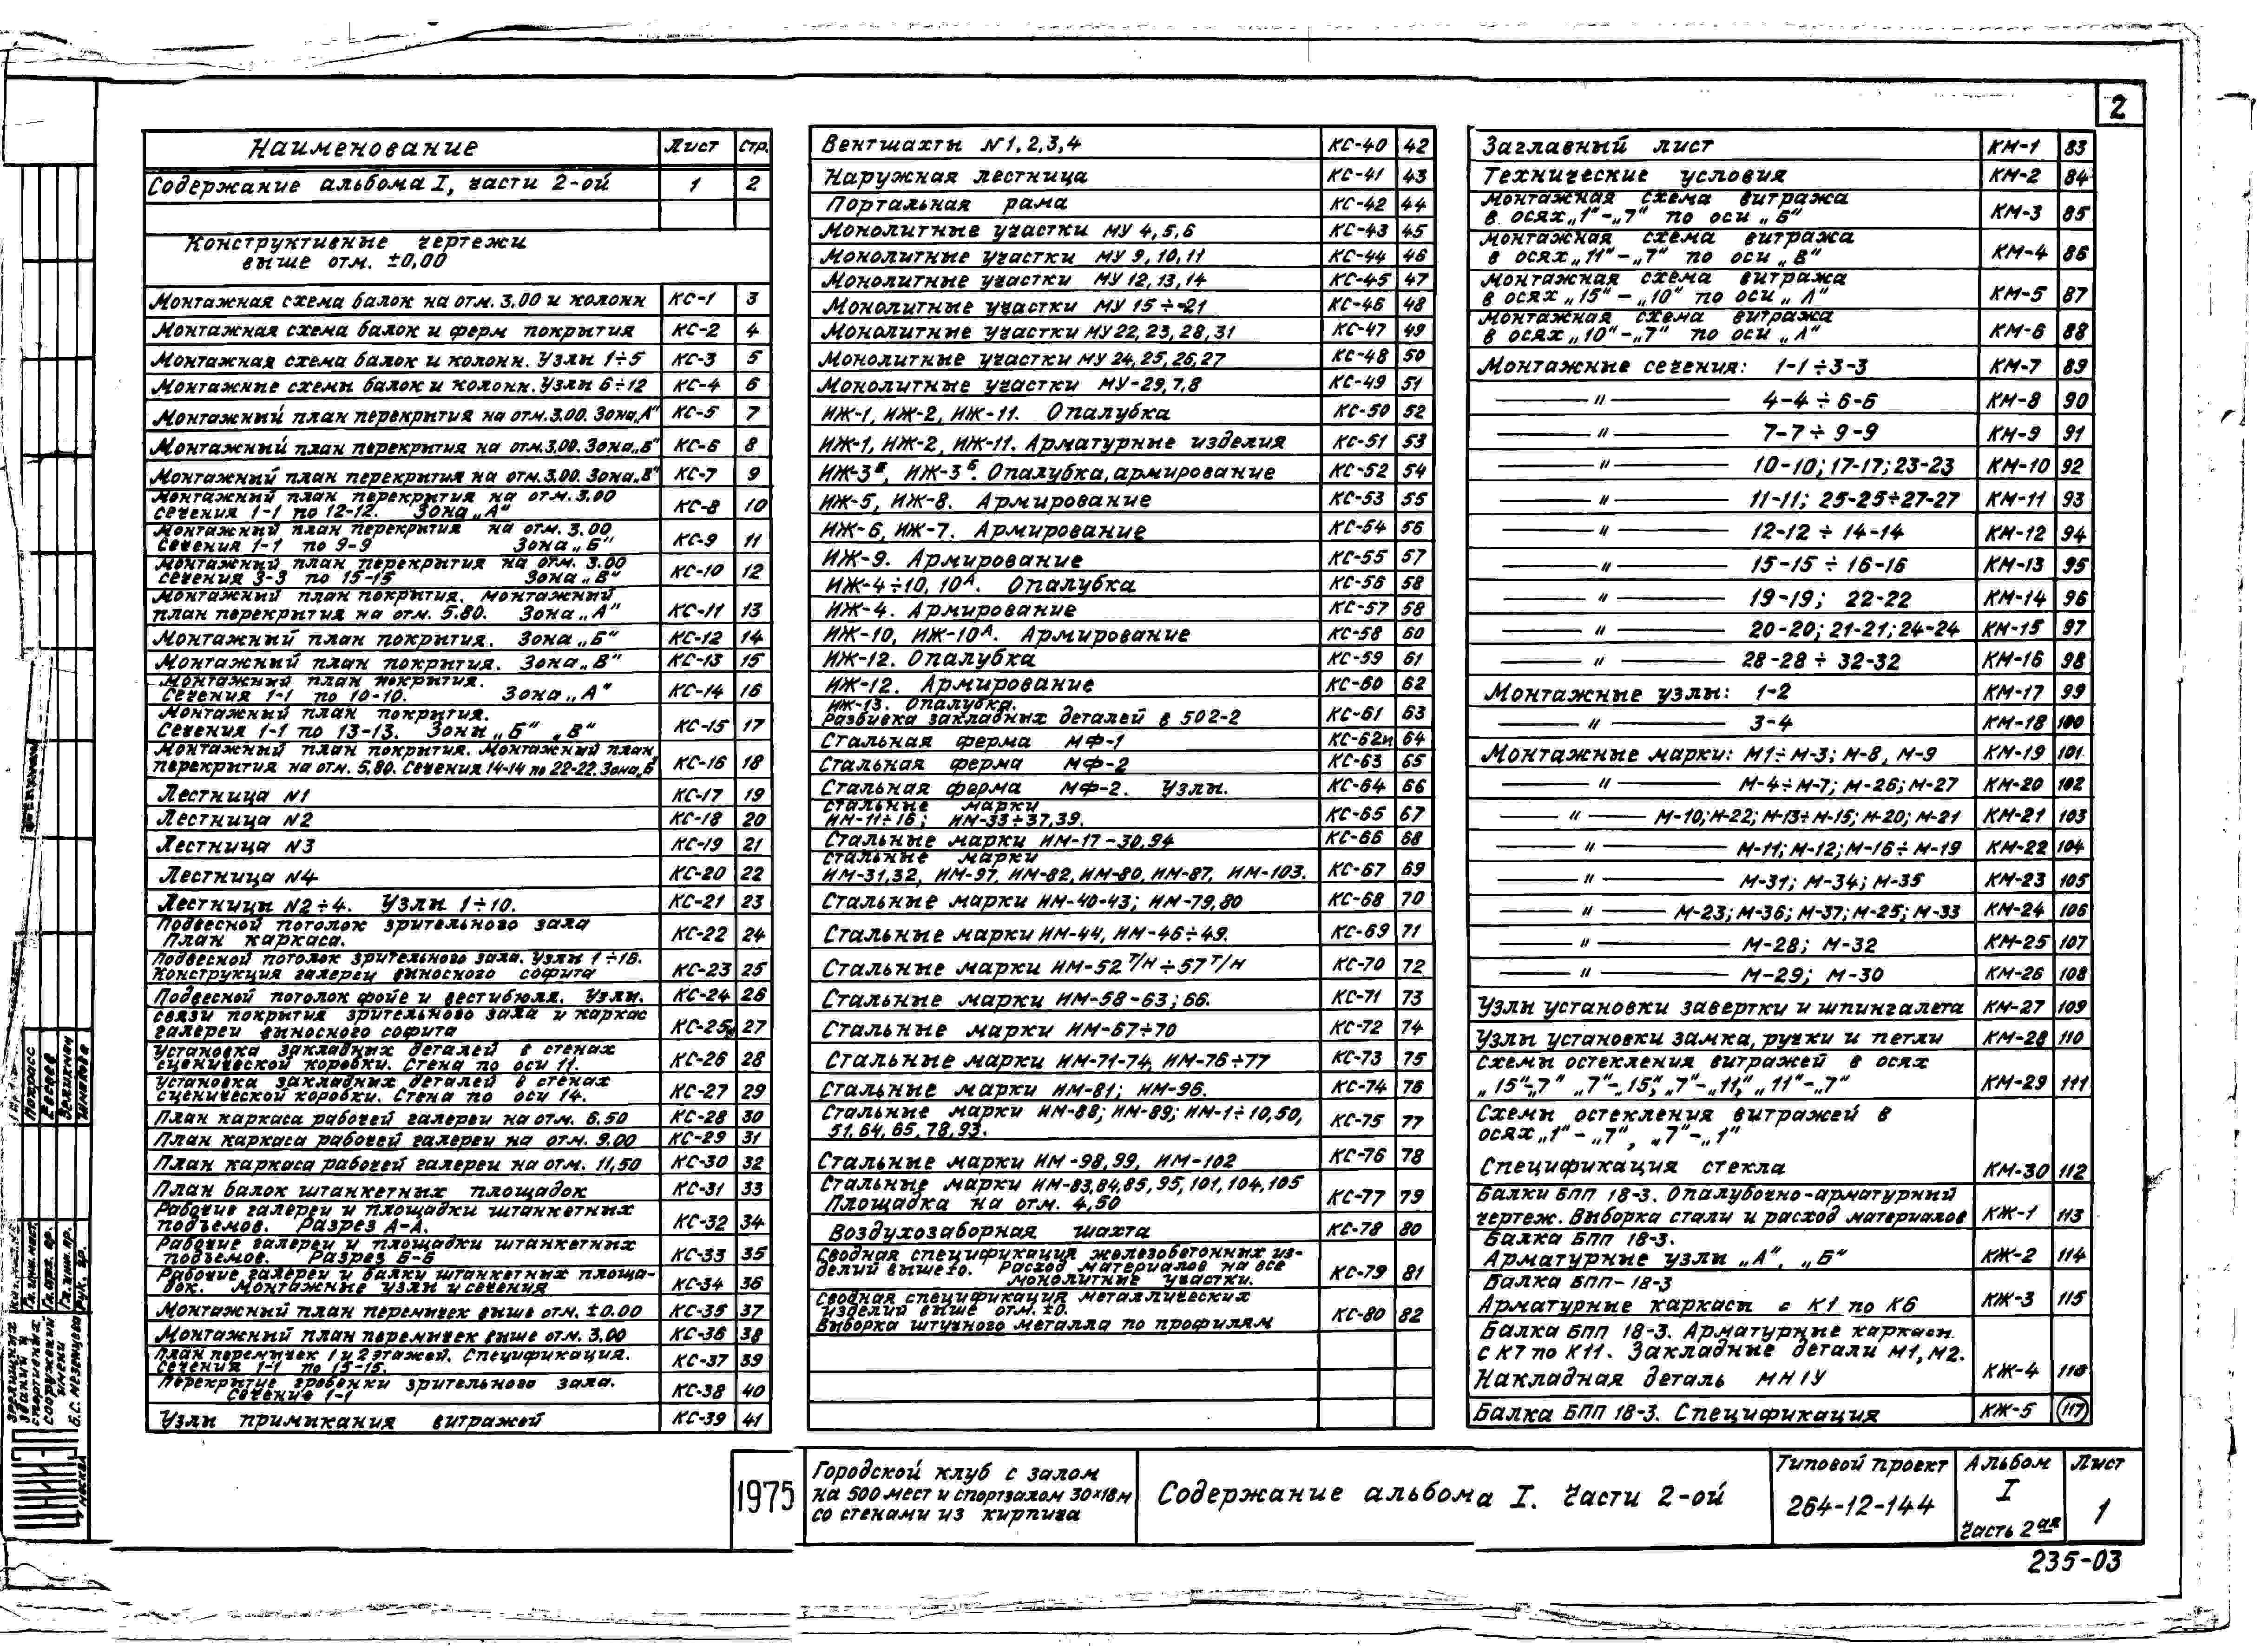 2
Наименование Лист Стр.
Содержание альбома I, части 2-ой 1 2
Конструктивные чертежи
выше отм. ±0,00
Монтажная схема балок на отм. 3.00 и колонн КС-1 3
Монтажная схема балок и ферм покрытия КС-2 4
Монтажная схема балок и колонн. Узлы 1÷5 КС-3 5
Монтажные схемы балок и колонн. Узлы 6÷12 КС-4 6
Монтажный план перекрытия на отм. 3.00. Зона „А" КС-5 7
Монтажный план перекрытия на отм. 3.00. Зона „Б" КС-6 8
Монтажный план перекрытия на отм. 3.00. Зона „В" КС-7 9
Монтажный план перекрытия на отм. 3.00
сечения 1-1 по 12-12. Зона „А" КС-8 10
Монтажный план перекрытия на отм. 3.00
Сечения 1-1 по 9-9 Зона „Б" КС-9 11
Монтажный план перекрытия на отм. 3.00
сечения 3-3 по 15-15 Зона „В" КС-10 12
Монтажный план покрытия. Монтажный
план перекрытия на отм. 5.80. Зона „А" КС-11 13
Монтажный план покрытия. Зона „Б" КС-12 14
Монтажный план покрытия. Зона „В" КС-13 15
Монтажный план покрытия.
Сечения 1-1 по 10-10. Зона „А" КС-14 16
Монтажный план покрытия.
Сечения 1-1 по 13-13. Зоны „Б" „В" КС-15 17
Монтажный план покрытия. Монтажный план
перекрытия на отм. 5.80. Сечения 14-14 по 22-22. Зона „Б" КС-16 18
Лестница N1 КС-17 19
Лестница N2 КС-18 20
Лестница N3 КС-19 21
Лестница N4 КС-20 22
Лестницы N2÷4. Узлы 1÷10. КС-21 23
Подвесной потолок зрительного зала
План каркаса. КС-22 24
Подвесной потолок зрительного зала. Узлы 1÷16.
Конструкция галереи выносного софита КС-23 25
Подвесной потолок фойе и вестибюля. Узлы. КС-24 26
Связи покрытия зрительного зала и каркас
галереи выносного софита КС-25 27
Установка закладных деталей в стенах
сценической коробки. Стена по оси 11. КС-26 28
Установка закладных деталей в стенах
сценической коробки. Стена по оси 14. КС-27 29
План каркаса рабочей галереи на отм. 6.50 КС-28 30
План каркаса рабочей галереи на отм. 9.00 КС-29 31
План каркаса рабочей галереи на отм. 11,50 КС-30 32
План балок штанкетных площадок КС-31 33
Рабочие галереи и площадки штанкетных
подъемов. Разрез А-А. КС-32 34
Рабочие галереи и площадки штанкетных
подъемов. Разрез Б-Б КС-33 35
Рабочие галереи и балки штанкетных площа-
док. Монтажные узлы и сечения КС-34 36
Монтажный план перемычек выше отм. ±0.00 КС-35 37
Монтажный план перемычек выше отм. 3.00 КС-36 38
План перемычек 1 и 2 этажей. Спецификация.
Сечения 1-1 по 15-15. КС-37 39
Перекрытие гребенки зрительного зала.
Сечение 1-1 КС-38 40
Узлы примыкания витражей КС-39 41
Вентшахты N 1, 2, 3, 4 КС-40 42
Наружная лестница КС-41 43
Портальная рама КС-42 44
Монолитные участки МУ 4, 5, 6 КС-43 45
Монолитные участки МУ 9, 10, 11 КС-44 46
Монолитные участки МУ 12, 13, 14 КС-45 47
Монолитные участки МУ 15÷21 КС-46 48
Монолитные участки МУ 22, 23, 28, 31 КС-47 49
Монолитные участки МУ 24, 25, 26, 27 КС-48 50
Монолитные участки МУ-29, 7, 8 КС-49 51
ИЖ-1, ИЖ-2, ИЖ-11. Опалубка КС-50 52
ИЖ-1, ИЖ-2, ИЖ-11. Арматурные изделия КС-51 53
ИЖ-3, ИЖ-3Б. Опалубка, армирование КС-52 54
ИЖ-5, ИЖ-8. Армирование КС-53 55
ИЖ-6, ИЖ-7. Армирование КС-54 56
ИЖ-9. Армирование КС-55 57
ИЖ-4÷10, 10А. Опалубка КС-56 58
ИЖ-4. Армирование КС-57 58
ИЖ-10, ИЖ-10А. Армирование КС-58 60
ИЖ-12. Опалубка КС-59 61
ИЖ-12. Армирование КС-60 62
ИЖ-13. Опалубка.
Разбивка закладных деталей в 502-2 КС-61 63
Стальная ферма МФ-1 КС-62и 64
Стальная ферма МФ-2 КС-63 65
Стальная ферма МФ-2. Узлы. КС-64 66
Стальные марки
ИМ-11÷16; ИМ-33÷37,39. КС-65 67
Стальные марки ИМ-17-30,94 КС-66 68
Стальные марки
ИМ-31,32, ИМ-97, ИМ-82, ИМ-80, ИМ-87, ИМ-103. КС-67 69
Стальные марки ИМ-40-43; ИМ-79,80 КС-68 70
Стальные марки ИМ-44, ИМ-46÷49. КС-69 71
Стальные марки ИМ-52 т/н÷57 т/н КС-70 72
Стальные марки ИМ-58-63; 66. КС-71 73
Стальные марки ИМ-67÷70 КС-72 74
Стальные марки ИМ-71-74, ИМ-76÷77 КС-73 75
Стальные марки ИМ-81; ИМ-96. КС-74 76
Стальные марки ИМ-88; ИМ-89; ИМ-1÷10,50,
51,64,65,78,93. КС-75 77
Стальные марки ИМ-98,99, ИМ-102 КС-76 78
Стальные марки ИМ-83,84,85,95,101,104,105
Площадка на отм. 4,50 КС-77 79
Воздухозаборная шахта КС-78 80
Сводная спецификация железобетонных из-
делий выше ±0. Расход материалов на все
монолитные участки. КС-79 81
Сводная спецификация металлических
изделий выше отм. ±0.
Выборка штучного металла по профилям КС-80 82
Заглавный лист КМ-1 83
Технические условия КМ-2 84
Монтажная схема витража
в осях „1"-„7" по оси „Б" КМ-3 85
Монтажная схема витража
в осях „11"-„7" по оси „В" КМ-4 86
Монтажная схема витража
в осях „15"-„10" по оси „Л" КМ-5 87
Монтажная схема витража
в осях „10"-„7" по оси „Л" КМ-6 88
Монтажные сечения: 1-1÷3-3 КМ-7 89
—"— 4-4÷6-6 КМ-8 90
—"— 7-7÷9-9 КМ-9 91
—"— 10-10; 17-17; 23-23 КМ-10 92
—"— 11-11; 25-25÷27-27 КМ-11 93
—"— 12-12÷14-14 КМ-12 94
—"— 15-15÷16-16 КМ-13 95
—"— 19-19; 22-22 КМ-14 96
—"— 20-20; 21-21; 24-24 КМ-15 97
—"— 28-28÷32-32 КМ-16 98
Монтажные узлы: 1-2 КМ-17 99
—"— 3-4 КМ-18 100
Монтажные марки: М1÷М-3; М-8, М-9 КМ-19 101
—"— М-4÷М-7; М-26; М-27 КМ-20 102
—"— М-10; М-22; М-13÷М-15; М-20; М-21 КМ-21 103
—"— М-11; М-12; М-16÷М-19 КМ-22 104
—"— М-31; М-34; М-35 КМ-23 105
—"— М-23; М-36; М-37; М-25; М-33 КМ-24 106
—"— М-28; М-32 КМ-25 107
—"— М-29; М-30 КМ-26 108
Узлы установки завертки и шпингалета КМ-27 109
Узлы установки замка, ручки и петли КМ-28 110
Схемы остекления витражей в осях
„15"-„7" „7"-„15", „7"-„11", „11"-„7" КМ-29 111
Схемы остекления витражей в
осях „1"-„7", „7"-„1"
Спецификация стекла КМ-30 112
Балки БПП 18-3. Опалубочно-арматурный
чертеж. Выборка стали и расход материалов КЖ-1 113
Балка БПП 18-3.
Арматурные узлы „А", „Б" КЖ-2 114
Балка БПП-18-3
Арматурные каркасы с К1 по К6 КЖ-3 115
Балка БПП 18-3. Арматурные каркасы
с К7 по К11. Закладные детали М1, М2.
Накладная деталь МН1У КЖ-4 116
Балка БПП 18-3. Спецификация КЖ-5 117
1975
Городской клуб с залом
на 500 мест и спортзалом 30×18м
со стенами из кирпича
Содержание альбома I. Части 2-ой
Типовой проект
264-12-144
Альбом
I
Часть 2ая
Лист
1
235-03
зрелищных
зданий и
спортивных
сооружений
имени
Б.С. Мезенцева
Москва
Гл. инж. маст.
Гл. арх. пр.
Гл. инж. пр.
Рук. гр.
Покрасс